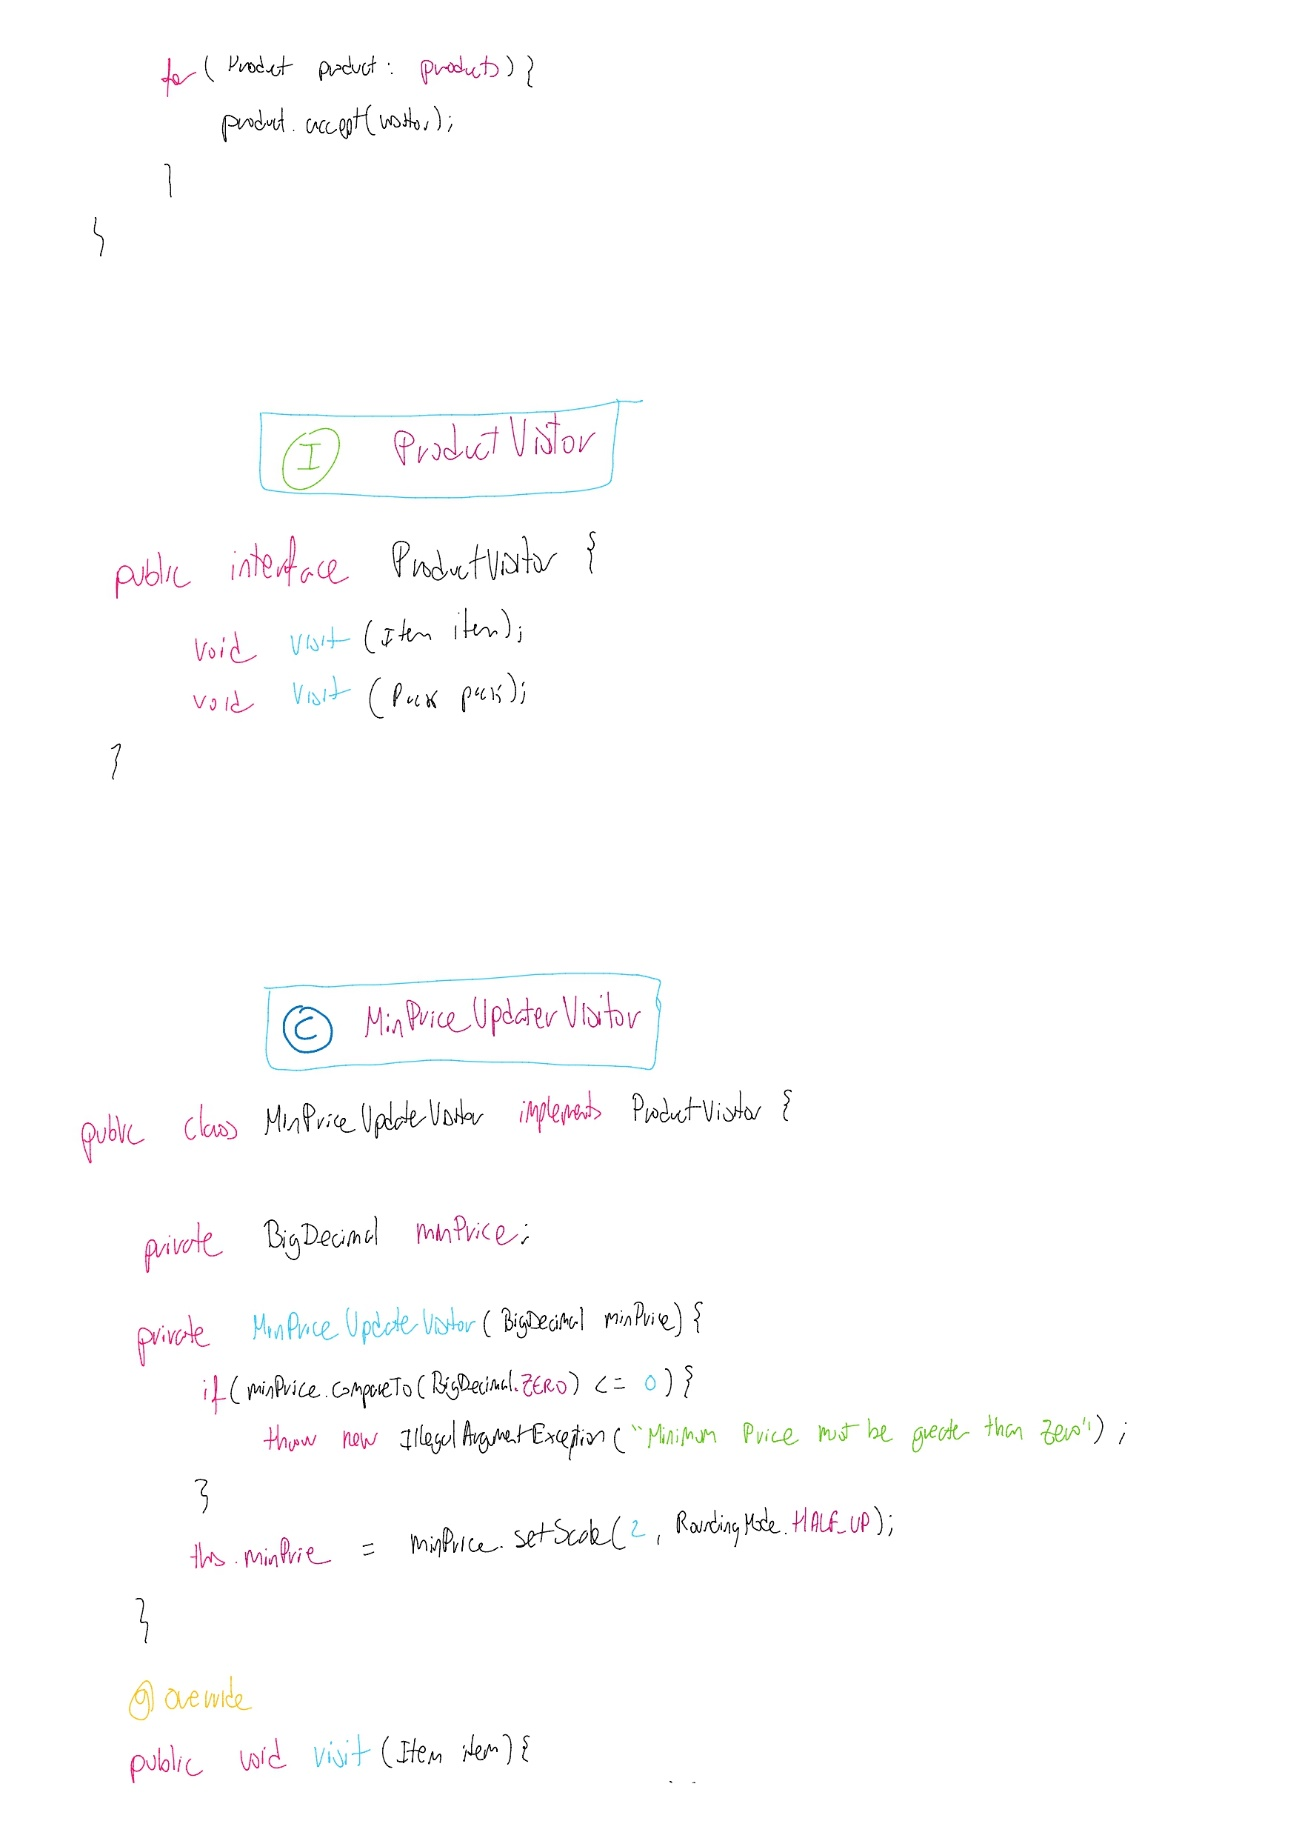 for ( Product product : products ) {
product.accept(visitor);
}
}
I ProductVisitor
public interface ProductVisitor {
void visit (Item item);
void visit (Pack pack);
}
C MinPriceUpdaterVisitor
public class MinPriceUpdateVisitor implements ProductVisitor {
private BigDecimal minPrice;
private MinPriceUpdateVisitor ( BigDecimal minPrice) {
if ( minPrice.compareTo ( BigDecimal.ZERO) <= 0 ) {
throw new IllegalArgumentException ( "Minimum Price must be greater than Zero" ) ;
}
this.minPrie = minPrice.setScale( 2 , RoundingMode.HALF_UP);
}
@override
public void visit (Item item) {